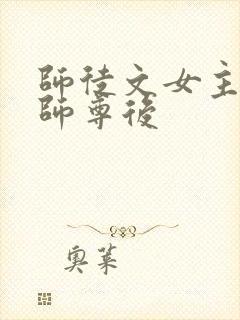 師徒文女主
師尊後
奧萊